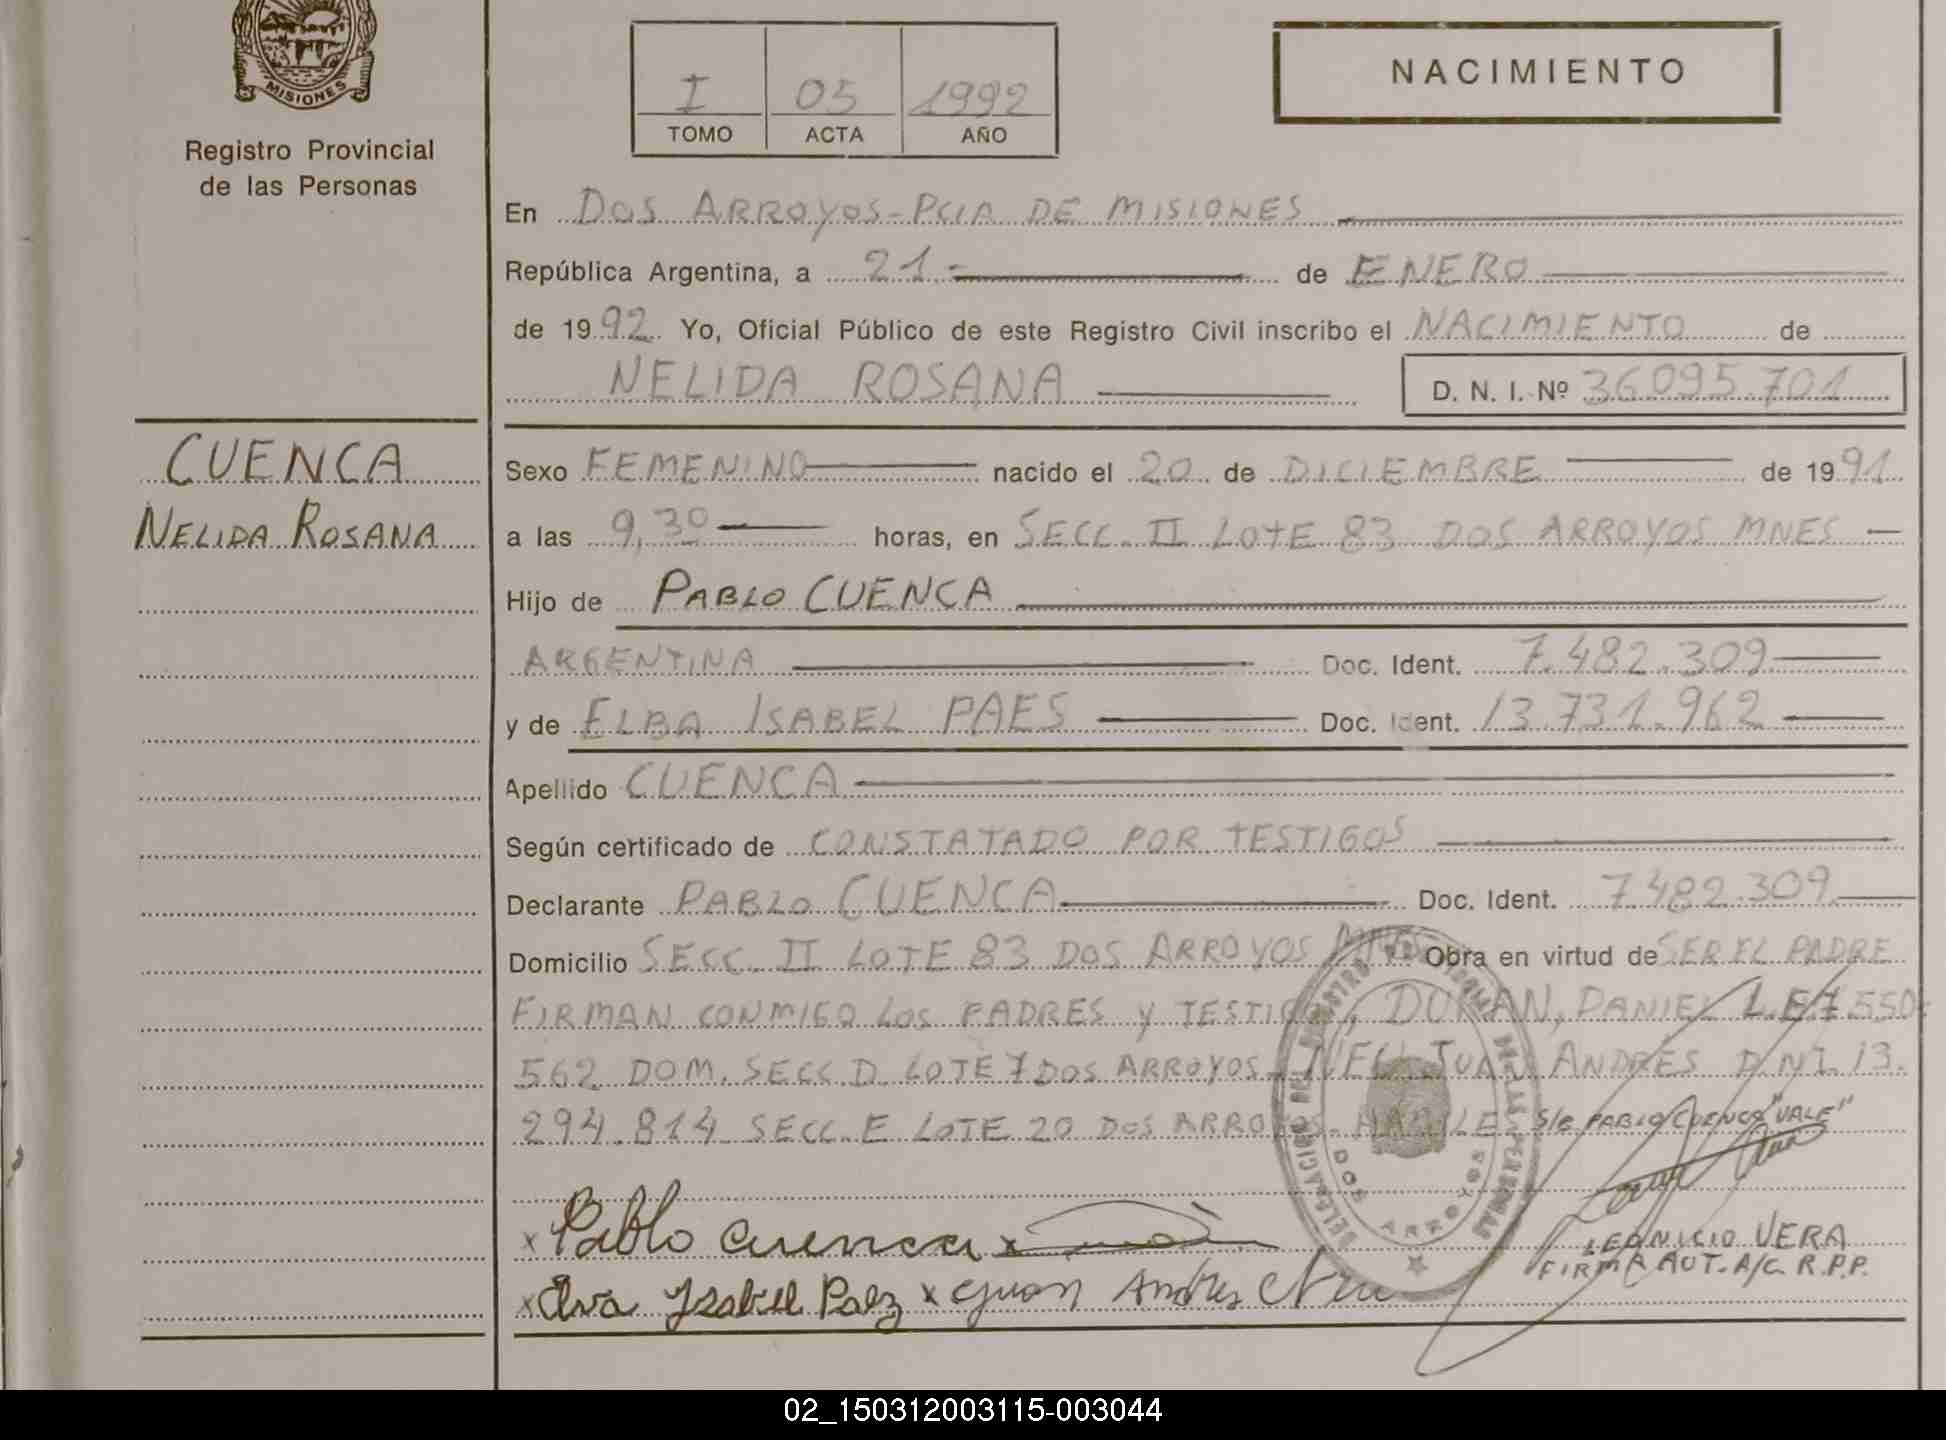 MISIONES
Registro Provincial
de las Personas
I 05 1992
TOMO ACTA AÑO
NACIMIENTO
En DOS ARROYOS - PCIA DE MISIONES
República Argentina, a 21 - de ENERO
de 1992 Yo, Oficial Público de este Registro Civil inscribo el NACIMIENTO de
NELIDA ROSANA D. N. I. Nº 36.095.701
CUENCA
NELIDA ROSANA
Sexo FEMENINO nacido el 20 de DICIEMBRE de 1991
a las 9,30 horas, en SECC. II LOTE 83 DOS ARROYOS MNES
Hijo de PABLO CUENCA
ARGENTINA Doc. Ident. 7.482.309
y de ELBA ISABEL PAES Doc. Ident. 13.731.962
Apellido CUENCA
Según certificado de CONSTATADO POR TESTIGOS
Declarante PABLO CUENCA Doc. Ident. 7.482.309
Domicilio SECC. II LOTE 83 DOS ARROYOS MNES Obra en virtud de SER EL PADRE
FIRMAN CONMIGO LOS PADRES Y TESTIGOS, DURAN, DANIEL L.E 7.550.
562 DOM. SECC D LOTE 7 DOS ARROYOS - JUAN ANDRES D.NI. 13.
294.814 SECC. E LOTE 20 DOS ARROYOS. HABILES S/e PABLO CUENCA "VALE"
DOS ARROYOS
x Pablo Cuenca x
LEONICIO VERA
FIRMA AUT. A/C. R.P.P.
x Elva Ysabel Paez x Juan Andres
02_150312003115-003044